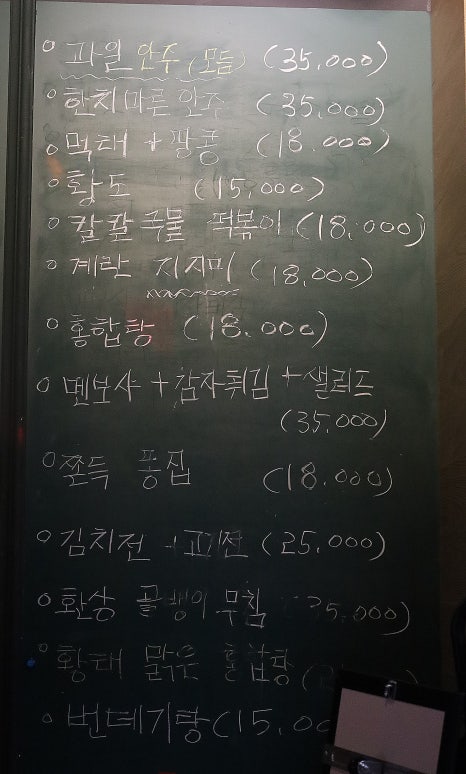 과일 안주 (모듬) (35,000)
한치마른안주 (35,000)
먹태 + 땅콩 (18.000)
황도 (15,000)
칼칼국물 떡볶이 (18,000)
계란 지지미 (18,000)
홍합탕 (18.000)
멘보샤 + 감자튀김 + 샐러드
(35,000)
쫀득 똥집 (18.000)
김치전 +고기전 (25,000)
환상 골뱅이 무침 (35,000)
황태 맑은 홍합탕
번데기탕 (15,00